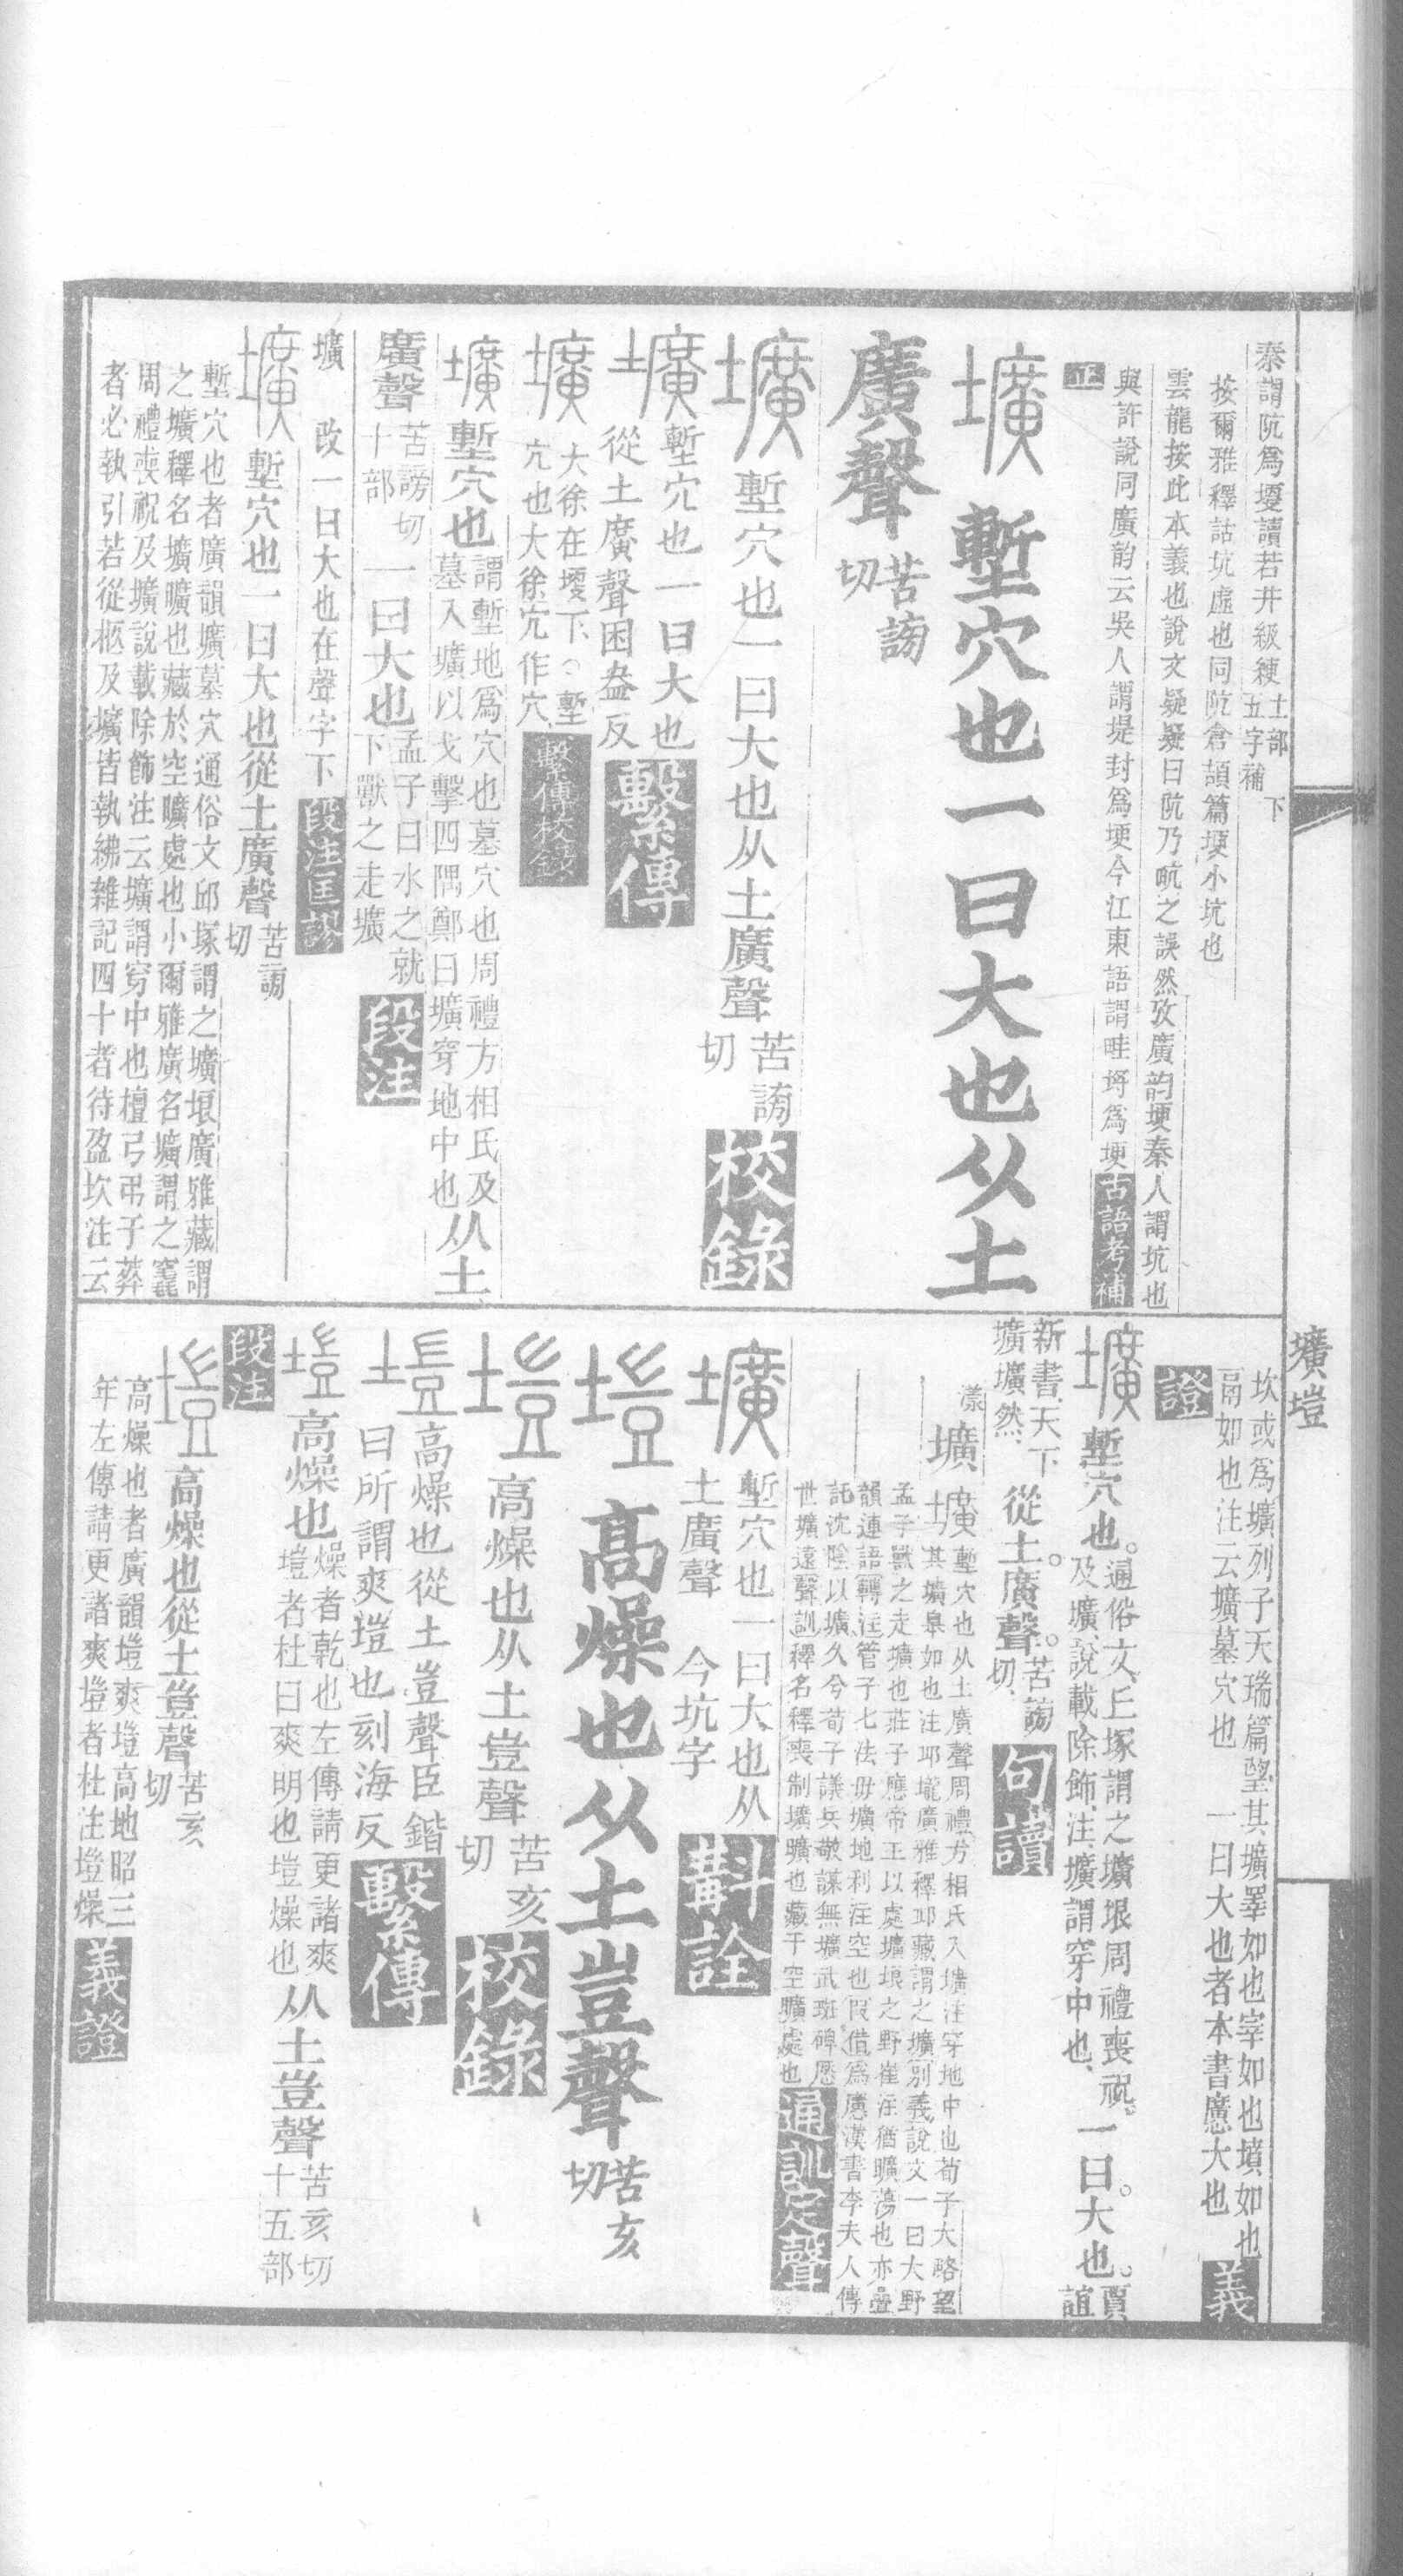 秦謂阬爲㙁讀若井級綆土部五字補下
按爾雅釋詁坑虛也同阬倉頡篇埂小坑也
雲龍按此本義也說文疑疑曰阬乃㽘之誤然攷廣韵埂秦人謂坑也
與許說同廣韵云吳人謂堤封爲埂今江東語謂畦埒爲埂古語考補
正
壙塹穴也一曰大也从土
廣聲苦謗切
壙塹穴也一曰大也从土廣聲苦謗切校錄
壙塹穴也一曰大也
從土廣聲困盎反繫傳
壙大徐在㙁下。塹
穴也大徐宂作穴繫傳校錄
壙塹穴也謂塹地爲穴也墓穴也周禮方相氏及
墓入壙以戈擊四隅鄭曰壙穿地中也从土
廣聲苦謗切十部一曰大也孟子曰水之就
下獸之走壙段注
壙 改一曰大也在聲字下段注匡謬
壙塹穴也一曰大也從土廣聲苦謗切
塹穴也者廣韻壙墓穴通俗文邱塚謂之壙埌廣雅藏謂
之壙釋名壙曠也藏於空曠處也小爾雅廣名壙謂之竁
周禮喪祝及壙說載除飾注云壙謂穿中也檀弓弔于葬
者必執引若從柩及壙皆執紼雜記四十者待盈坎注云
壙塏
坎或爲壙列子天瑞篇望其壙睪如也宰如也墳如也
鬲如也注云壙墓穴也 一曰大也者本書懬大也義
證
壙塹穴也。通俗文丘塚謂之壙埌周禮喪祝
及壙說載除飾注壙謂穿中也一曰。大也。賈誼
新書天下壙壙然從土。廣聲。苦謗切句讀
漾
壙塹穴也从土廣聲周禮方相氏入壙注穿地中也荀子大略望
其壙皋如也注邱壠廣雅釋邱藏謂之壙別義說文一曰大野
孟子獸之走壙也莊子應帝王以處壙埌之野崔注猶曠蕩也亦疊
韻連語轉注管子七法毋壙地利注空也假借爲懬漢書李夫人傳
託沈陰以壙久今荀子議兵敬謀無壙武班碑懬
世壙遠聲訓釋名釋喪制壙曠也藏于空曠處也通訓定聲
壙塹穴也一曰大也从
土廣聲 今坑字斠詮
塏高燥也从土豈聲苦亥切
塏高燥也从土豈聲苦亥切校錄
塏高燥也從土豈聲臣鍇
曰所謂爽塏也刻海反繫傳
塏高燥也燥者乾也左傳請更諸爽
塏者杜曰爽明也塏燥也从土豈聲苦亥切十五部
段注
塏高燥也從土豈聲苦亥切
高燥也者廣韻塏爽塏高地昭三
年左傳請更諸爽塏者杜注塏燥義證